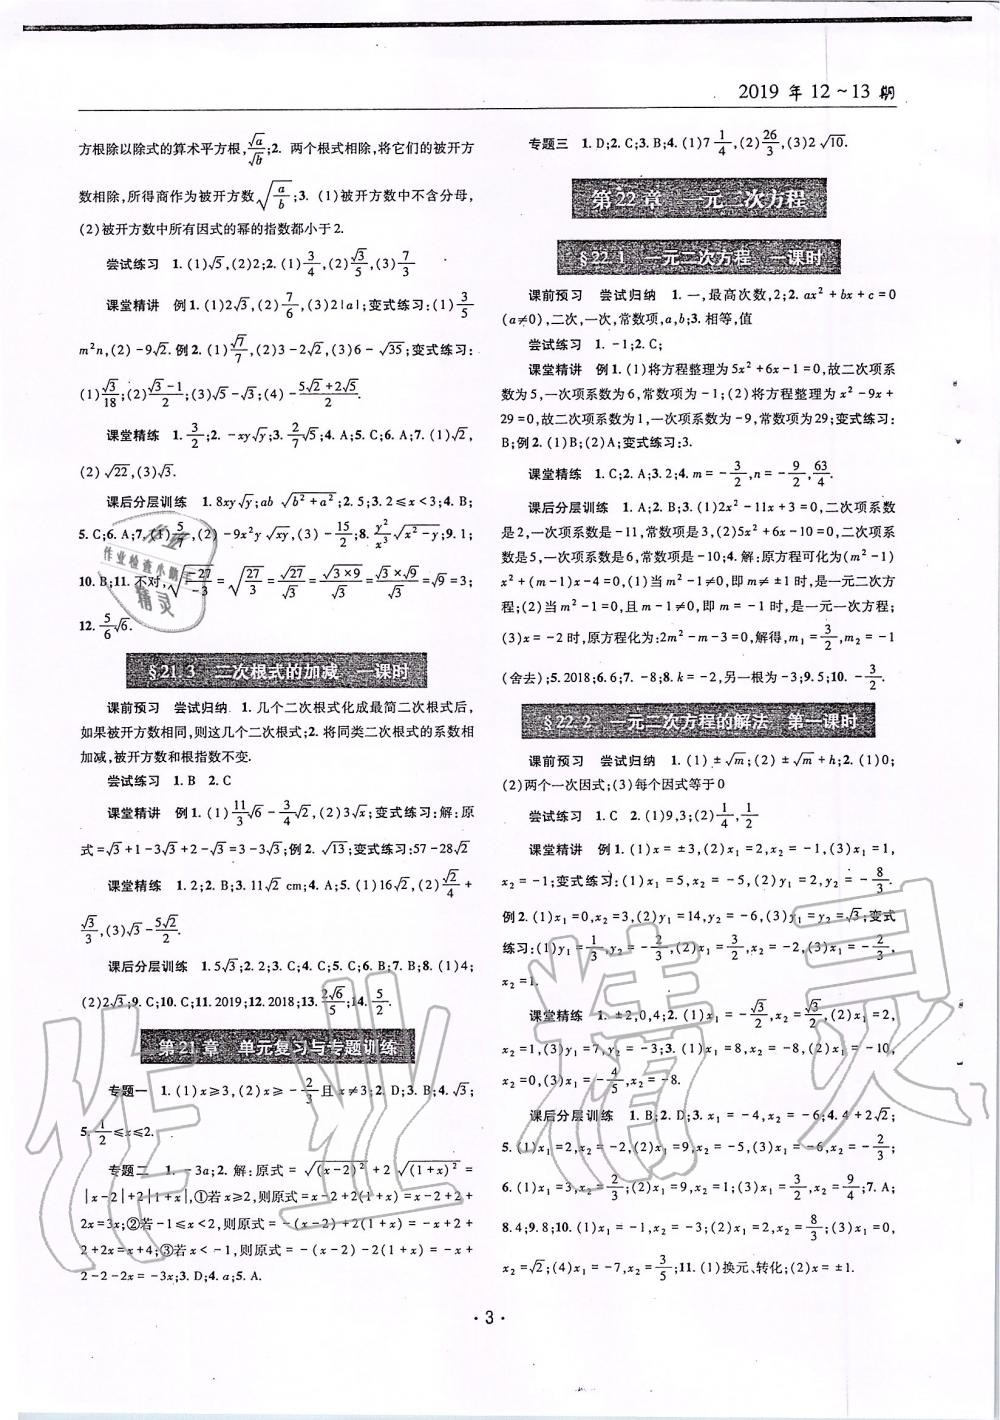 2019 年 12～13 期
方根除以除式的算术平方根,√a/√b;2. 两个根式相除,将它们的被开方
数相除,所得商作为被开方数√(a/b);3. (1)被开方数中不含分母,
(2)被开方数中所有因式的幂的指数都小于2.
尝试练习 1. (1)√5,(2)2;2. (1)3/4,(2)√3/5,(3)7/3
课堂精讲 例1. (1)2√3,(2)7/6,(3)2|a|;变式练习:(1)3/5
m²n,(2)-9√2. 例2. (1)√7/7,(2)3-2√2,(3)6-√35;变式练习:
(1)√3/18;(2)(√3-1)/2;(3)√5-√3;(4)-(5√2+2√5)/2.
课堂精练 1. 3/2;2. -xy√y;3. 2/7√5;4. A;5. C;6. A;7. (1)√2,
(2)√22,(3)√3.
课后分层训练 1. 8xy√y;ab√(b²+a²);2. 5;3. 2≤x<3;4. B;
5. C;6. A;7. (1)5/2,(2)-9x²y√xy,(3)-15/2;8. y²/x³√(x²-y);9. 1;
10. B;11. 不对,√(-27/-3)=√(27/3)=√27/√3=√(3×9)/√3=√3×√9/√3=√9=3;
12. 5/6√6.
§21.3 二次根式的加减 一课时
课前预习 尝试归纳 1. 几个二次根式化成最简二次根式后,
如果被开方数相同,则这几个二次根式;2. 将同类二次根式的系数相
加减,被开方数和根指数不变.
尝试练习 1. B 2. C
课堂精讲 例1. (1)11/3√6-3/4√2,(2)3√x;变式练习:解:原
式=√3+1-3√3+2-√3=3-3√3;例2. √13;变式练习:57-28√2
课堂精练 1. 2;2. B;3. 11√2 cm;4. A;5. (1)16√2,(2)√2/4+
√3/3,(3)√3-5√2/2.
课后分层训练 1. 5√3;2. 2;3. C;4. C;5. C;6. B;7. B;8. (1)4;
(2)2√3;9. C;10. C;11. 2019;12. 2018;13. 2√6/5;14. 5/2.
第21章 单元复习与专题训练
专题一 1. (1)x≥3,(2)x≥-2/3且x≠3;2. D;3. B;4. √3;
5. 1/2≤x≤2.
专题二 1. -3a;2. 解:原式=√(x-2)²+2√(1+x)²=
|x-2|+2|1+x|,①若x≥2,则原式=x-2+2(1+x)=x-2+2+
2x=3x;②若-1≤x<2,则原式=-(x-2)+2(1+x)=-x+2+
2+2x=x+4;③若x<-1,则原式=-(x-2)-2(1+x)=-x+
2-2-2x=-3x;3. D;4. a;5. A.
专题三 1. D;2. C;3. B;4. (1)7 1/4,(2)26/3,(3)2√10.
第22章 一元二次方程
§22.1 一元二次方程 一课时
课前预习 尝试归纳 1. 一,最高次数,2;2. ax²+bx+c=0
(a≠0),二次,一次,常数项,a,b;3. 相等,值
尝试练习 1. -1;2. C;
课堂精讲 例1. (1)将方程整理为5x²+6x-1=0,故二次项系
数为5,一次项系数为6,常数项为-1;(2)将方程整理为x²-9x+
29=0,故二次项系数为1,一次项系数为-9,常数项为29;变式练习:
B;例2. (1)B;(2)A;变式练习:3.
课堂精练 1. C;2. A;3. 2;4. m=-3/2,n=-9/2,63/4.
课后分层训练 1. A;2. B;3. (1)2x²-11x+3=0,二次项系数
是2,一次项系数是-11,常数项是3,(2)5x²+6x-10=0,二次项系
数是5,一次项系数是6,常数项是-10;4. 解:原方程可化为(m²-1)
x²+(m-1)x-4=0,(1)当m²-1≠0,即m≠±1时,是一元二次方
程;(2)当m²-1=0,且m-1≠0,即m=-1时,是一元一次方程;
(3)x=-2时,原方程化为:2m²-m-3=0,解得,m₁=3/2,m₂=-1
(舍去);5. 2018;6. 6;7. -8;8. k=-2,另一根为-3;9. 5;10. -3/2.
§22.2 一元二次方程的解法 第一课时
课前预习 尝试归纳 1. (1)±√m;(2)±√m+h;2. (1)0;
(2)两个一次因式;(3)每个因式等于0
尝试练习 1. C 2. (1)9,3;(2)1/4,1/2
课堂精讲 例1. (1)x=±3,(2)x₁=2,x₂=-1,(3)x₁=1,
x₂=-1;变式练习:(1)x₁=5,x₂=-5,(2)y₁=2,y₂=-8/3.
例2. (1)x₁=0,x₂=3,(2)y₁=14,y₂=-6,(3)y₁=y₂=√3;变式
练习:(1)y₁=1/3,y₂=-2/3,(2)x₁=3/2,x₂=-2,(3)x₁=-2/3,
x₂=1.
课堂精练 1. ±2,0,4;2. (1)x₁=-√3/2,x₂=√3/2,(2)x₁=2,
x₂=0,(3)y₁=7,y₂=-3;3. (1)x₁=8,x₂=-8,(2)x₁=-10,
x₂=0,(3)x₁=-4/5,x₂=-8.
课后分层训练 1. B;2. D;3. x₁=-4,x₂=-6;4. 4+2√2;
5. (1)x₁=2,x₂=-2,(2)x₁=9,x₂=-5,(3)x₁=-6,x₂=-2/3;
6. (1)x₁=3,x₂=2/3;(2)x₁=9,x₂=1;(3)x₁=3/2,x₂=9/4;7. A;
8. 4;9. 8;10. (1)x₁=-1,x₂=-3;(2)x₁=2,x₂=8/3;(3)x₁=0,
x₂=√2;(4)x₁=-7,x₂=3/5;11. (1)换元、转化;(2)x=±1.
· 3 ·
作业检查小助手
精灵
作业精灵